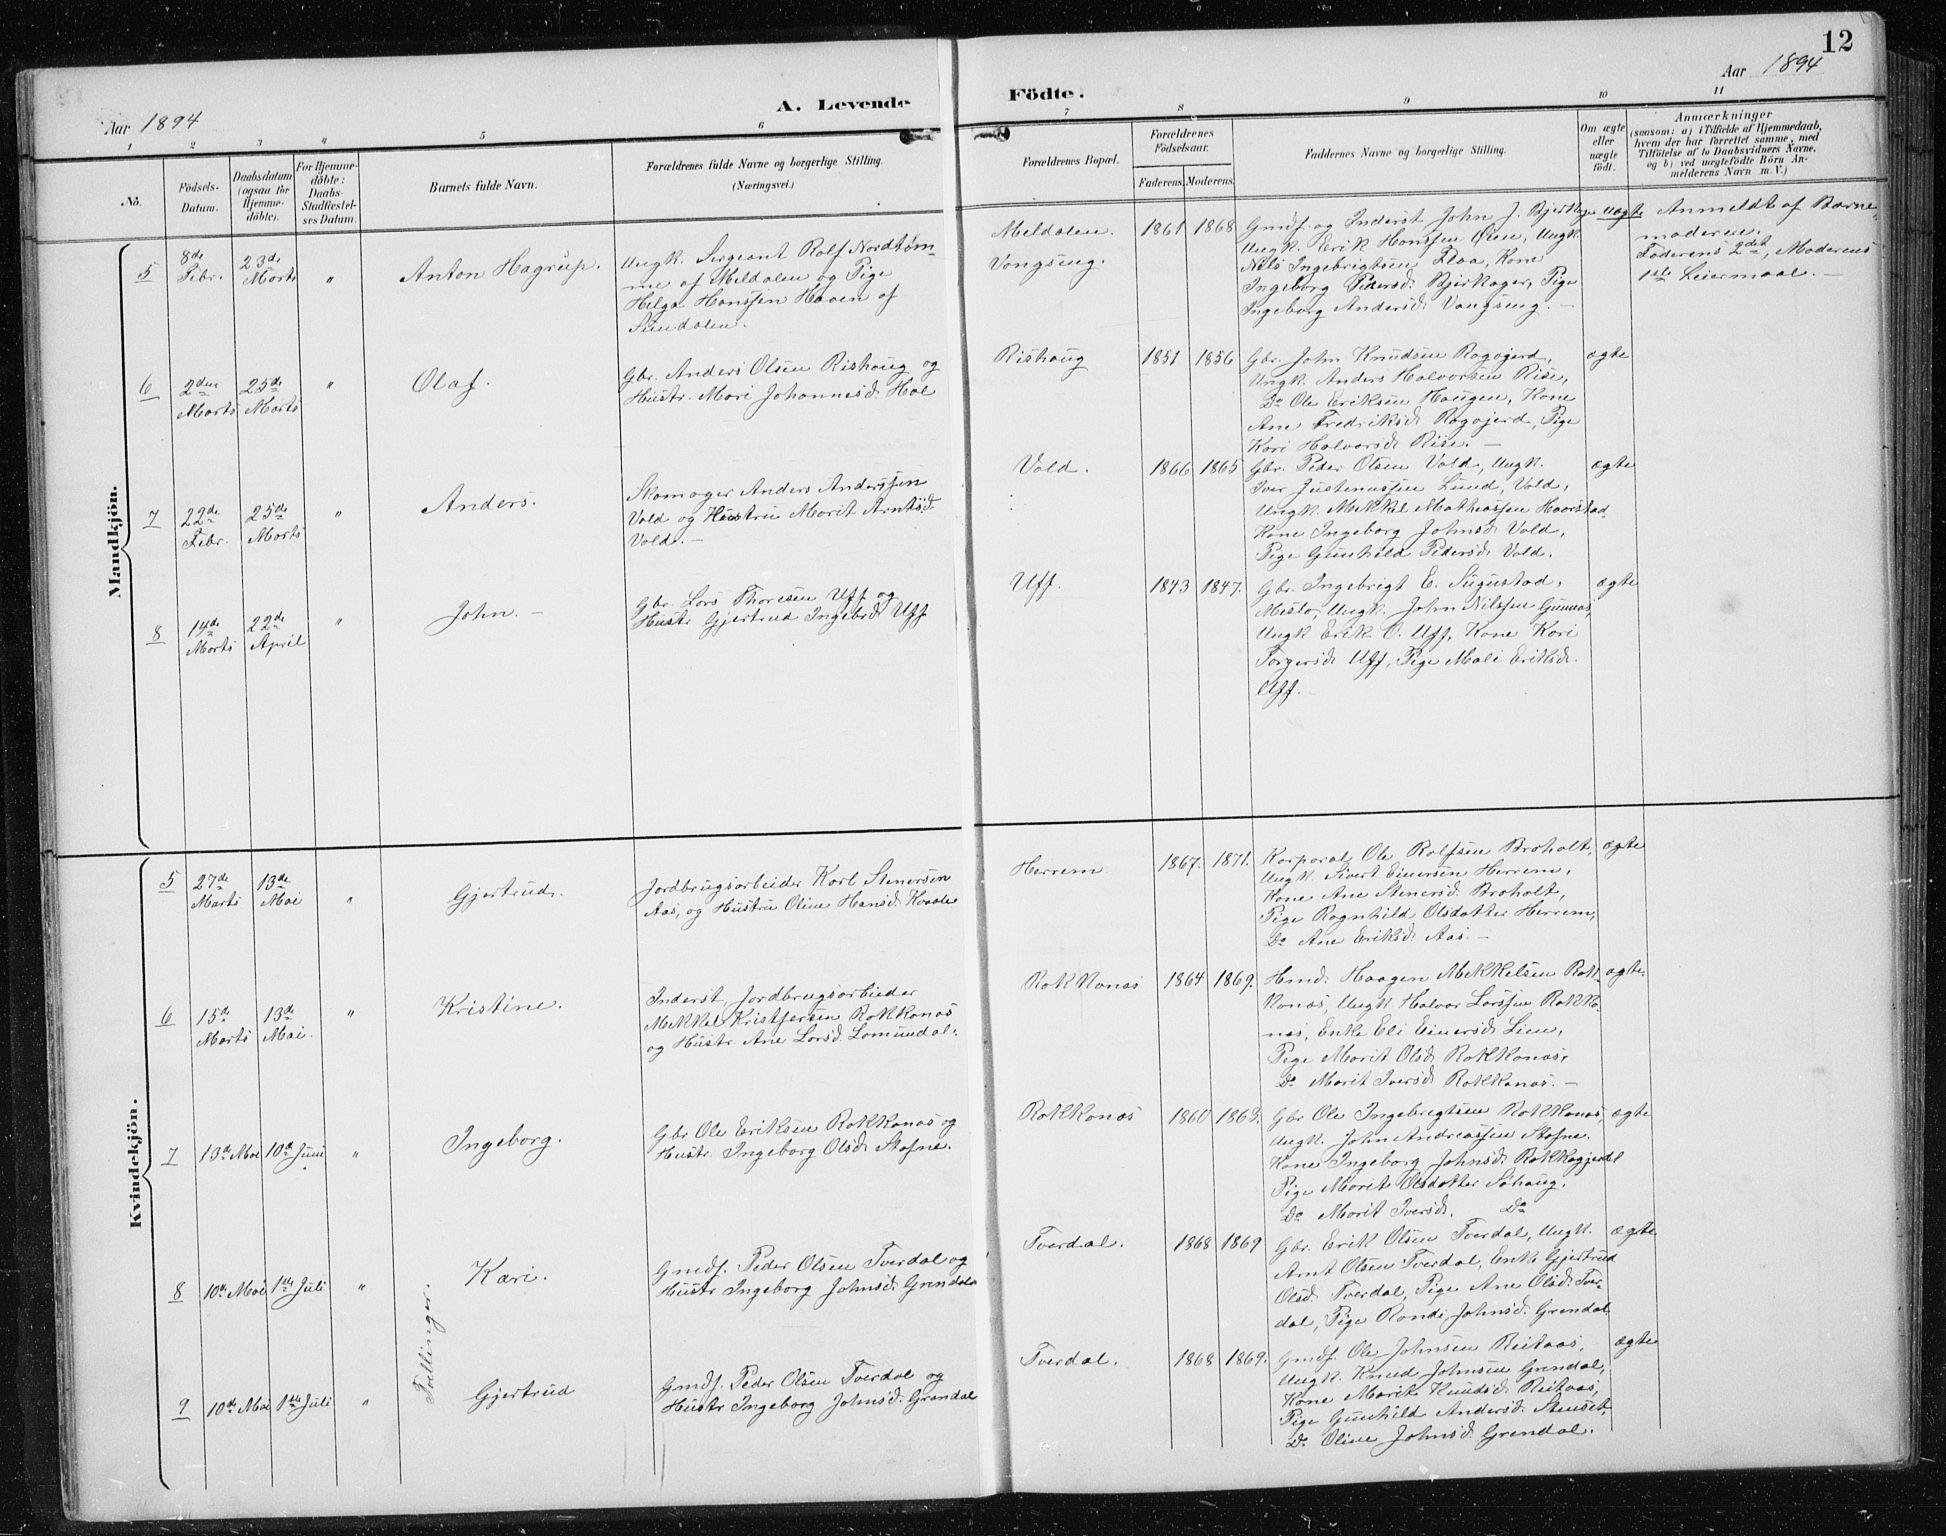 12
Aar 1894
A. Levende Födte.
Aar 1894
1 2 3 4 5 6 7 8 9 10 11
No.
Födsels-
Datum.
Daabsdatum
(ogsaa for
Hjemme-
döbte).
For Hjemme-
döbte:
Daabs-
Stadfæstel-
ses Datum.
Barnets fulde Navn.
Forældrenes fulde Navne og borgerlige Stilling.
(Næringsvei.)
Forældrenes Bopæl.
Forældrenes
Födselsaar.
Faderens. Moderens.
Faddernes Navne og borgerlige Stilling.
Om ægte
eller
uægte
födt.
Anmærkninger
(saasom: a) i Tilfælde af Hjemmedaab,
hvem der har forrettet samme, med
Tilföielse af to Daabsvidners Navne,
og b) ved uægtefödte Börn An-
melderens Navn m. V.)
Mandkjön.
5
8de
Febr.
23de
Marts
"
Anton Hagrup.
Ungk. Sergeant Rolf Nordtöm-
me af Meldalen og Pige
Helga Hanssen Haaen af
Sundalen.
Meldalen.
Vangseng.
1861 1868
Gmdf. og Inderst John J. Bjerkager
Ungk. Erik Hanssen Öien, Ungk.
Nils Ingebrigtsen Flaa, Kone
Ingeborg Pedersd. Bjerkager, Pige
Ingeborg Andersd. Vangseng. —
uægte
Anmeldt af Barne-
moderen.
Faderens 2det, Moderens
1ste Leiermaal. —
6
2den
Marts
25de
Marts
"
Olaf.
Gbr. Anders Olsen Rishaug og
Hustr. Mari Johannesd. Hol
Rishaug
1851 1856
Gbr. John Knudsen Ragojerd,
Ungk. Anders Halvorsen Rise,
Do Ole Eriksen Haugen, Kone
Ane Fredriksd. Ragojerd, Pige
Kari Halvorsd. Rise. —
ægte
7
22de
Febr.
25de
Marts
"
Anders.
Skomager Anders Anderssen
Vold og Hustru Marit Arntsd.
Vold. —
Vold.
1866 1865
Gbr. Peder Olsen Vold, Ungk.
Iver Justenussen Lund, Vold,
Ungk. Mekkel Mathiassen Haarstad
Kone Ingeborg Johnsd. Vold,
Pige Gunhild Pedersd. Vold.
ægte
8
14de
Marts
22de
April
"
John. —
Gbr. Lars Thoresen Uff og
Hustr. Gjertrud Ingebrd. Uff
Uff.
1843 1847.
Gbr. Ingebrigt E. Sugustad,
Meslo, Ungk. John Nilssen Gunnes,
Ungk. Erik O. Uff, Kone Kari
Torgersd. Uff, Pige Mali Eriksd.
Uff. —
ægte
Kvindekjön.
5
27de
Marts
13de
Mai
"
Gjertrud.
Jordbrugsarbeider Karl Stenersen
Aas, og Hustru Oline Hansd. Kvale
Herrem
1867. 1871.
Korporal Ole Rolfsen Broholt,
Ungk. Sivert Einersen Herrem,
Kone Ane Stenersd. Broholt,
Pige Ragnhild Olsdatter Herrem,
Do Ane Eriksd. Aas. —
ægte
6
15de
Marts
13de
Mai.
"
Kristine.
Inderst, Jordbrugsarbieder
Mekkel Kristfersen Rokkonas
og Hustr. Ane Larsd. Lomundal.
Rokkonas
1864 1869.
Hmd. Haagen Mekkelsen Rok-
konas, Ungk. Halvor Larssen Rokko-
nas, Enke Eli Einersd. Lien,
Pige Marit Olsd. Rokkonas,
Do Marit Iversd. Rokkonas. —
ægte
7
13de Mai
10de Juni
"
Ingeborg.
Gbr. Ole Eriksen Rokkonas og
Hustr. Ingeborg Olsd. Stofne.
Rokkonas
1860 1863.
Gbr. Ole Ingebrigtsen Rokkonas,
Ungk. John Andreassen Stofne.
Kone Ingeborg Johnsd. Rokkogjerdet
Pige Marit Olsdatter Sohaug,
Do Marit Iversd. Do
ægte
8
10de Mai
1ste Juli
"
Tvillinger.
Kari.
Gmdf. Peder Olsen Tverdal og
Hustr. Ingeborg Johnsd. Grendal
Tverdal.
1868 1869
Gbr. Erik Olsen Tverdal, Ungk.
Arnt Olsen Tverdal, Enke Gjertrud
Olsd. Tverdal, Pige Ane Olsd. Tver-
dal, Pige Randi Johnsd. Grendal
ægte
9
10de Mai
1ste Juli
"
Gjertrud
Gmdf. Peder Olsen Tverdal og
Hustr. Ingeborg Johnsd. Grendal
Tverdal.
1868 1869.
Gmdf. Ole Johnsen Reitaas,
Ungk. Knud Johnsen Grendal,
Kone Marit Knudsd. Reitaas,
Pige Gunhild Andersd. Stenset,
Do Oline Johnsd. Grendal.
ægte